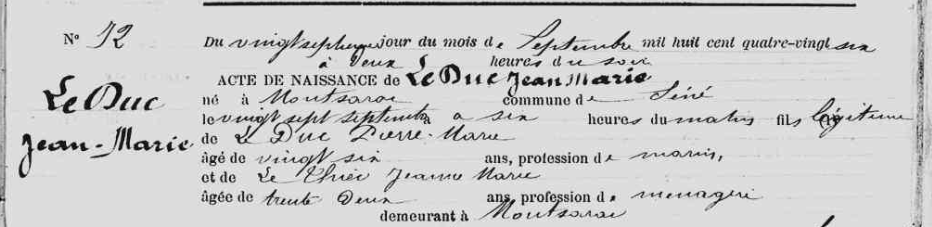 N° 12
Du vingt septieme jour du mois de Septembre mil huit cent quatre-vingt six
à deux heures du soir
ACTE DE NAISSANCE de Le Duc Jean Marie
Le Duc
Jean-Marie
né à Montsarac commune de Séné
le vingt sept septembre à six heures du matin fils légitime
de Le Duc Pierre-Marie
âgé de vingt six ans, profession de marin,
et de Le Thiec Jeanne Marie
âgée de trente deux ans, profession de menagère
demeurant à Montsarac